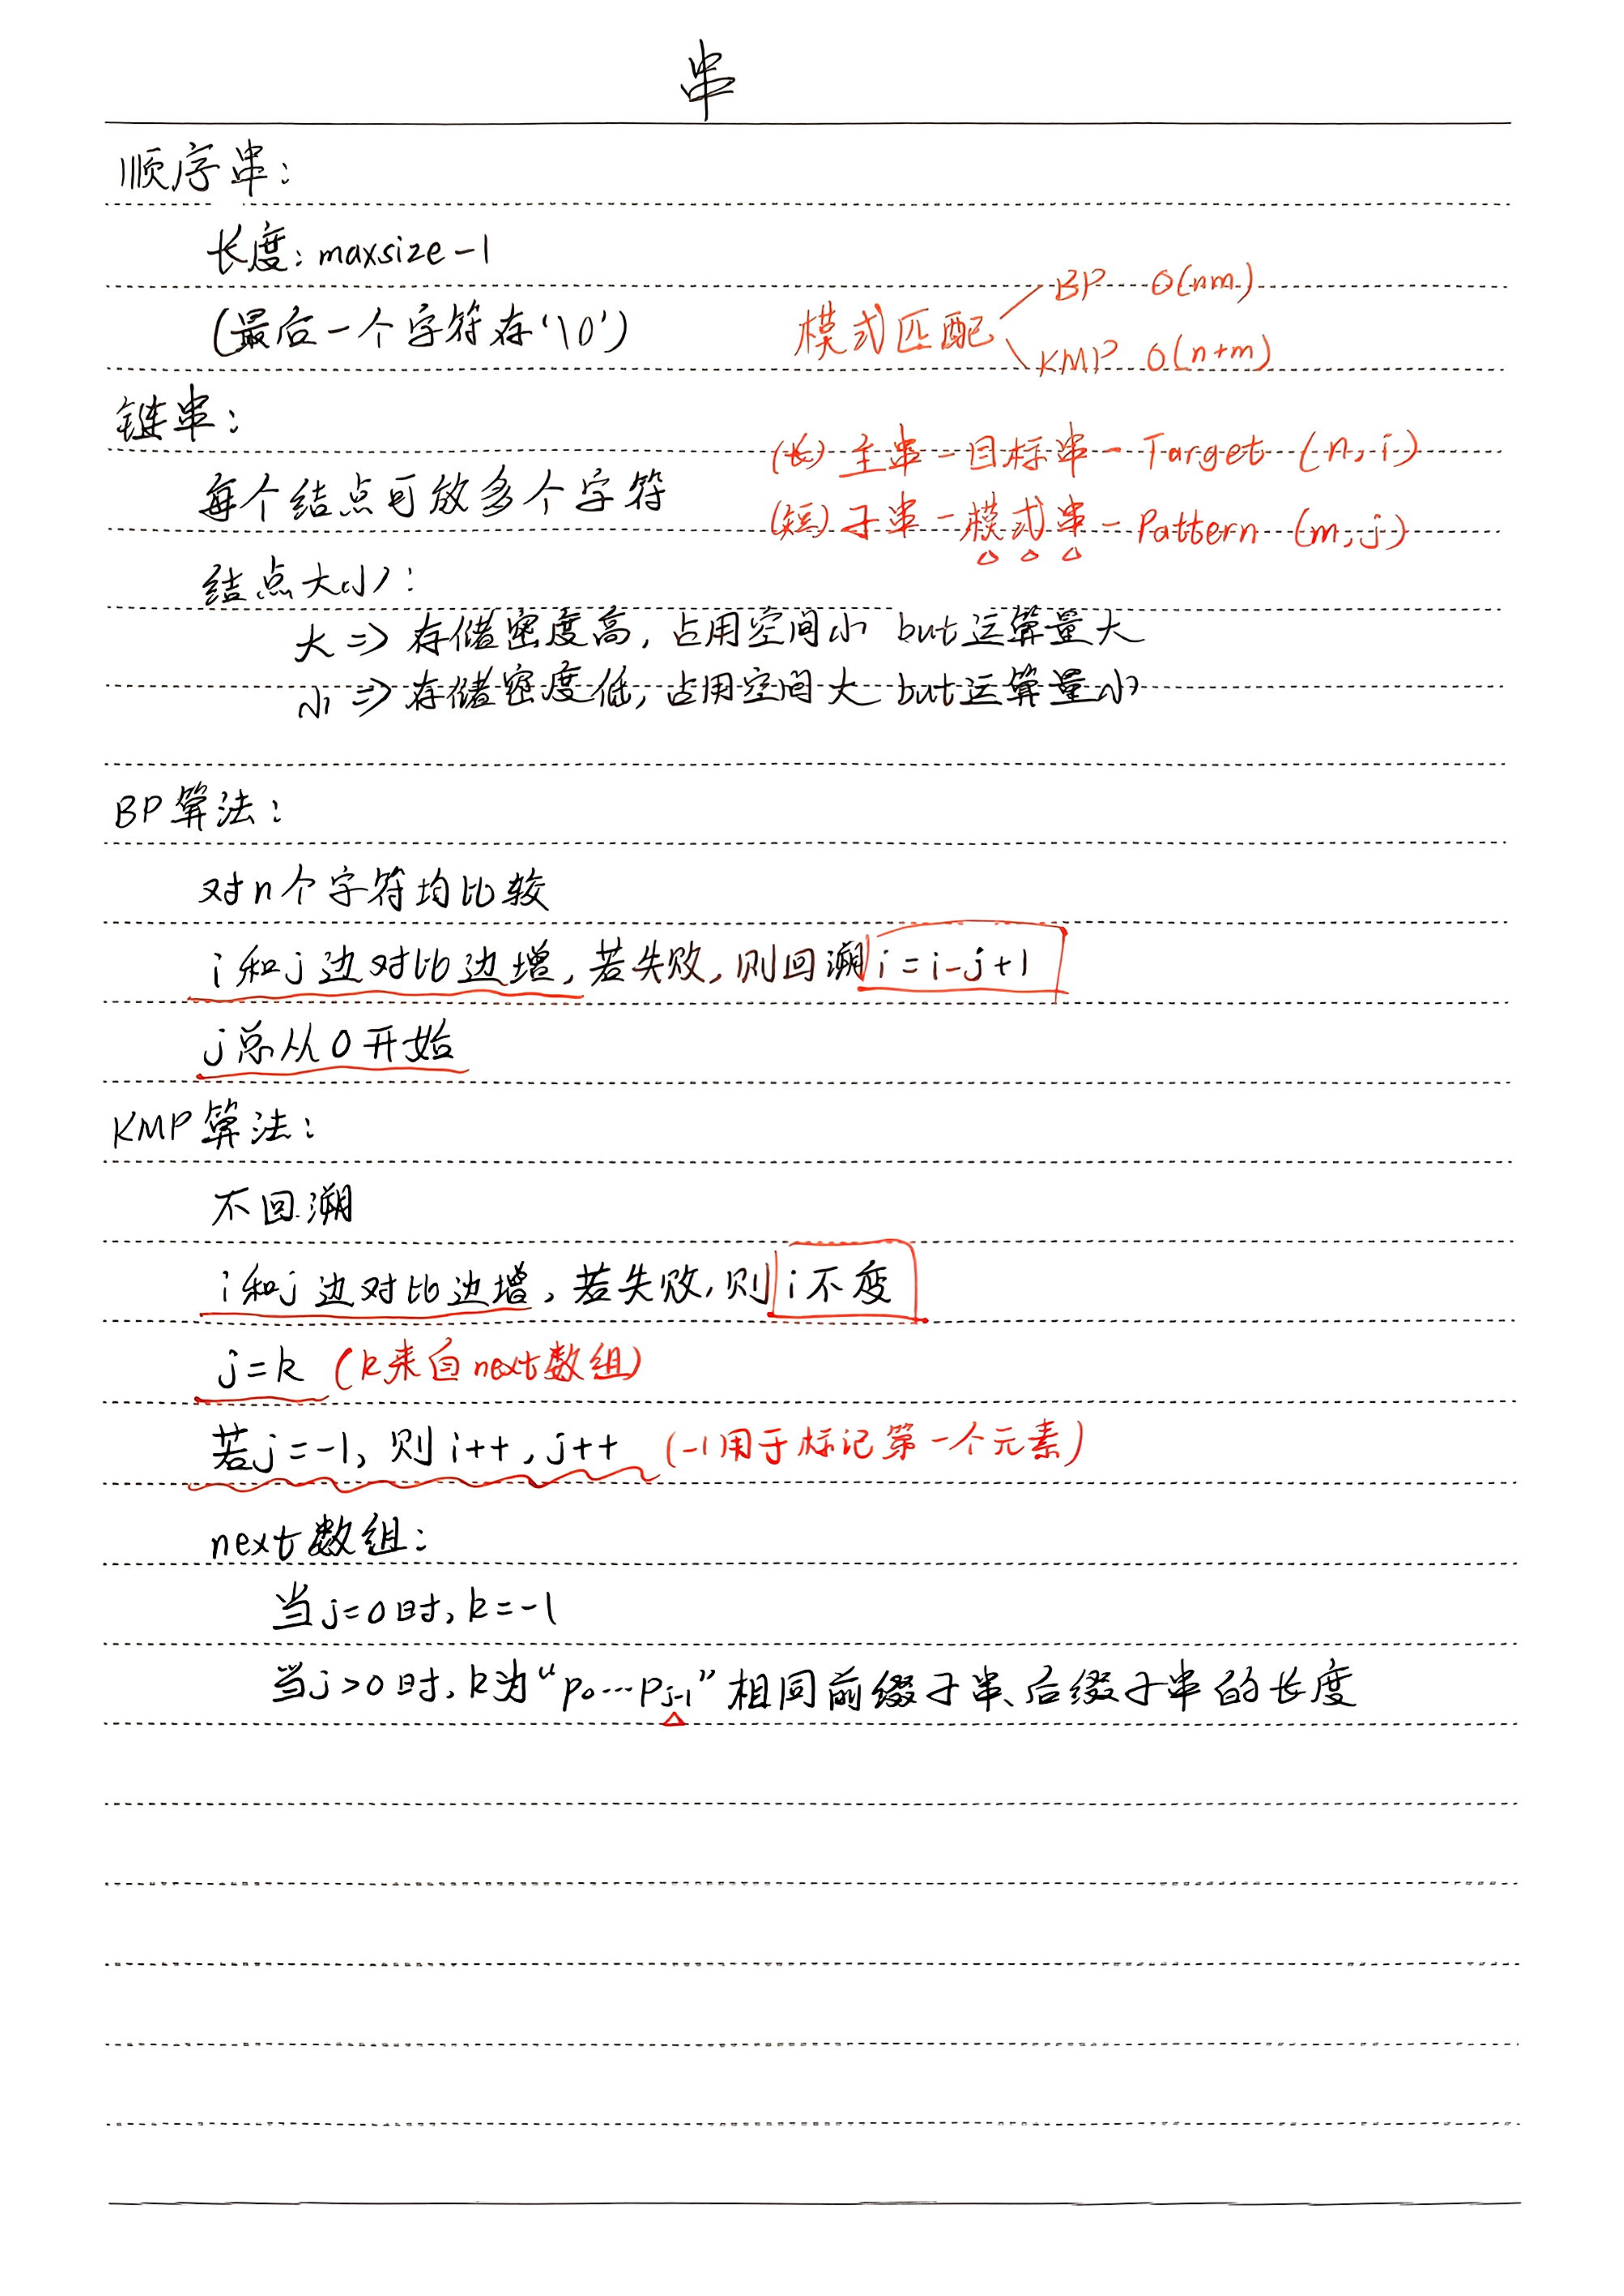 串
顺序串：
长度：maxsize-1
(最后一个字符存'\0')
模式匹配
BP O(nm)
KMP O(n+m)
链串：
(长) 主串-目标串-Target (n,i)
每个结点可放多个字符
(短) 子串-模式串-Pattern (m,j)
结点大小：
大 => 存储密度高，占用空间小 but运算量大
小 => 存储密度低，占用空间大 but运算量小
BP算法：
对n个字符均比较
i和j边对比边增，若失败，则回溯 i=i-j+1
j总从0开始
KMP算法：
不回溯
i和j边对比边增，若失败，则 i不变
j=k (k来自next数组)
若j=-1，则i++,j++ (-1用于标记第一个元素)
next数组：
当j=0时，k=-1
当j>0时，k为“p₀…pⱼ₋₁”相同前缀子串、后缀子串的长度